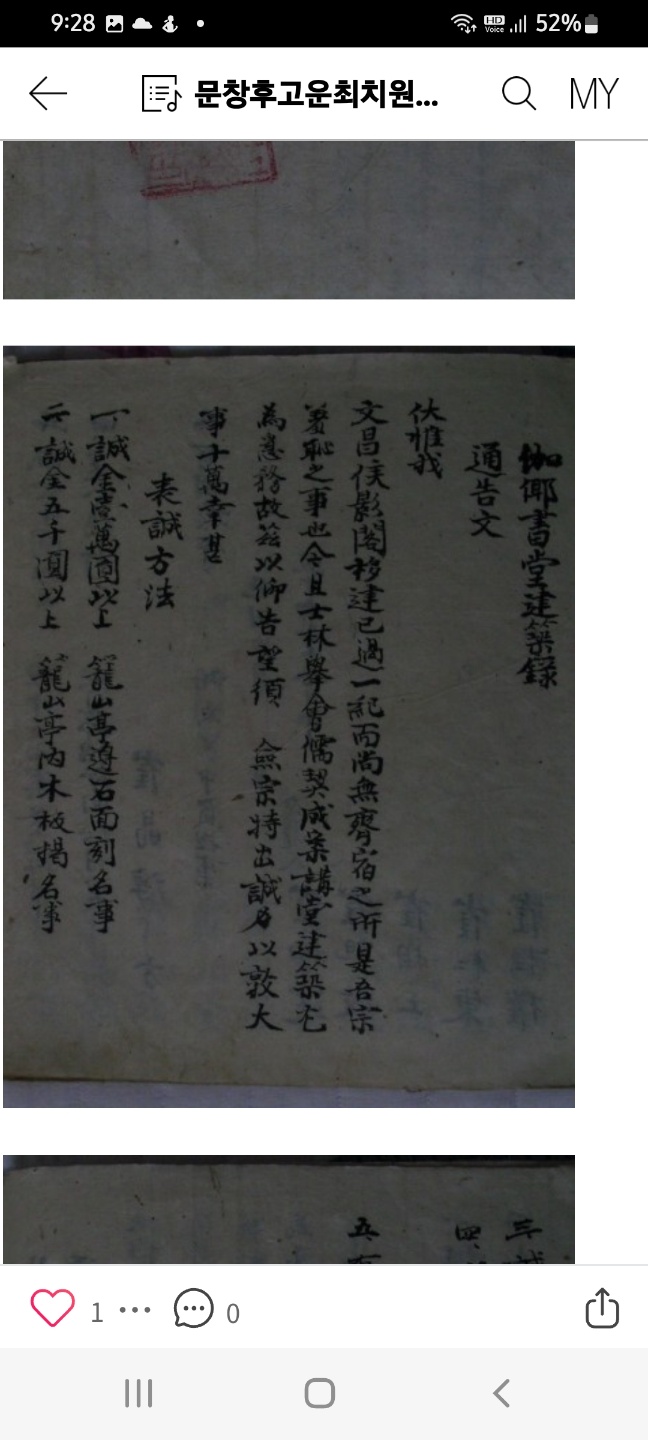 9:28
HD Voice
52%
문창후고운최치원...
MY
伽倻書堂建築錄
通告文
伏惟我
文昌侯影閣移建已過一紀而尚無齊宿之所是吾宗
羞恥之事也今且士林擧會儒契咸案講堂建築尤
為急務故茲以仰告望須 僉宗特出誠力以敦大
事十萬幸甚
表誠方法
一、誠金壹萬圓以上 籠山亭邊石面刻名事
二、誠金五千圓以上 籠山亭內木板揭名事
三、誠
四、
五、
1
0